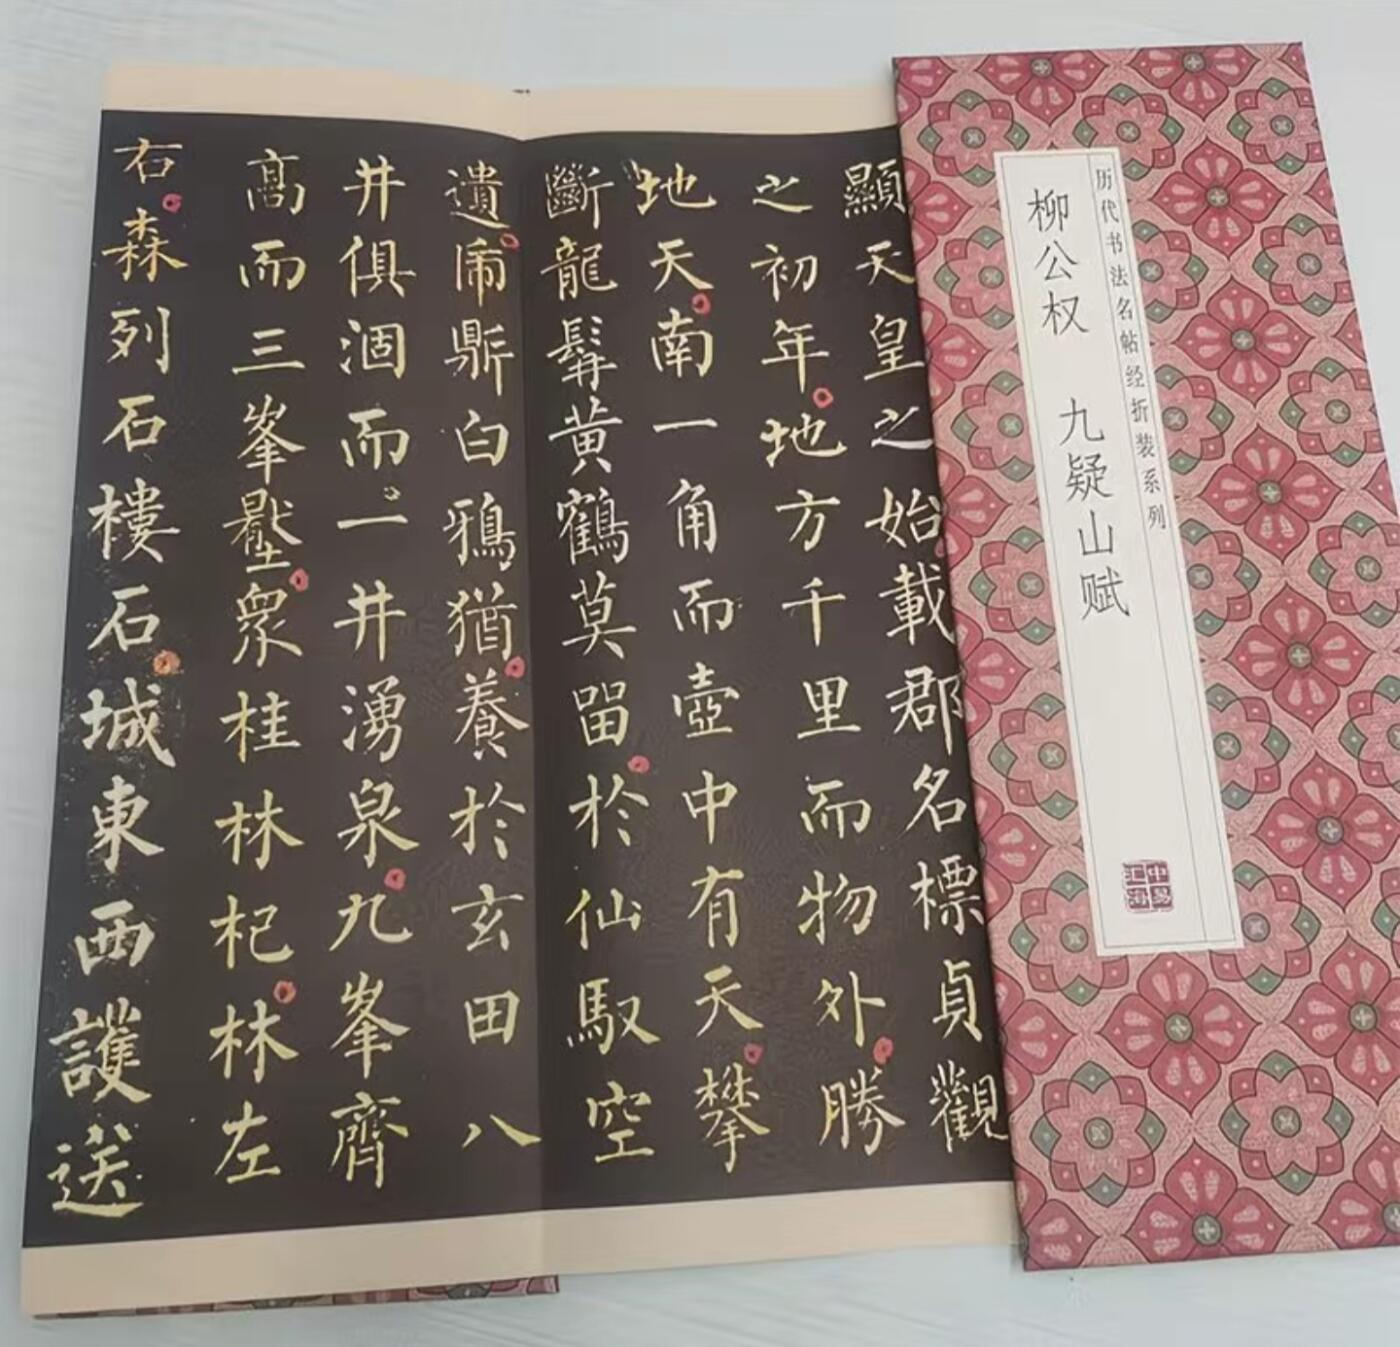 历代书法名帖经折装系列
柳公权 九疑山赋
中易汇海
顯天皇之始載郡名標貞觀
之初年地方千里而物外勝
地天南一角而壺中有天攀
斷龍髯黃鶴莫留於仙馭空
遺鬧鼎白鴉猶養於玄田八
井俱涸而一井湧泉九峯齊
高而三峯壓眾桂林杞林左
右森列石樓石城東西護送